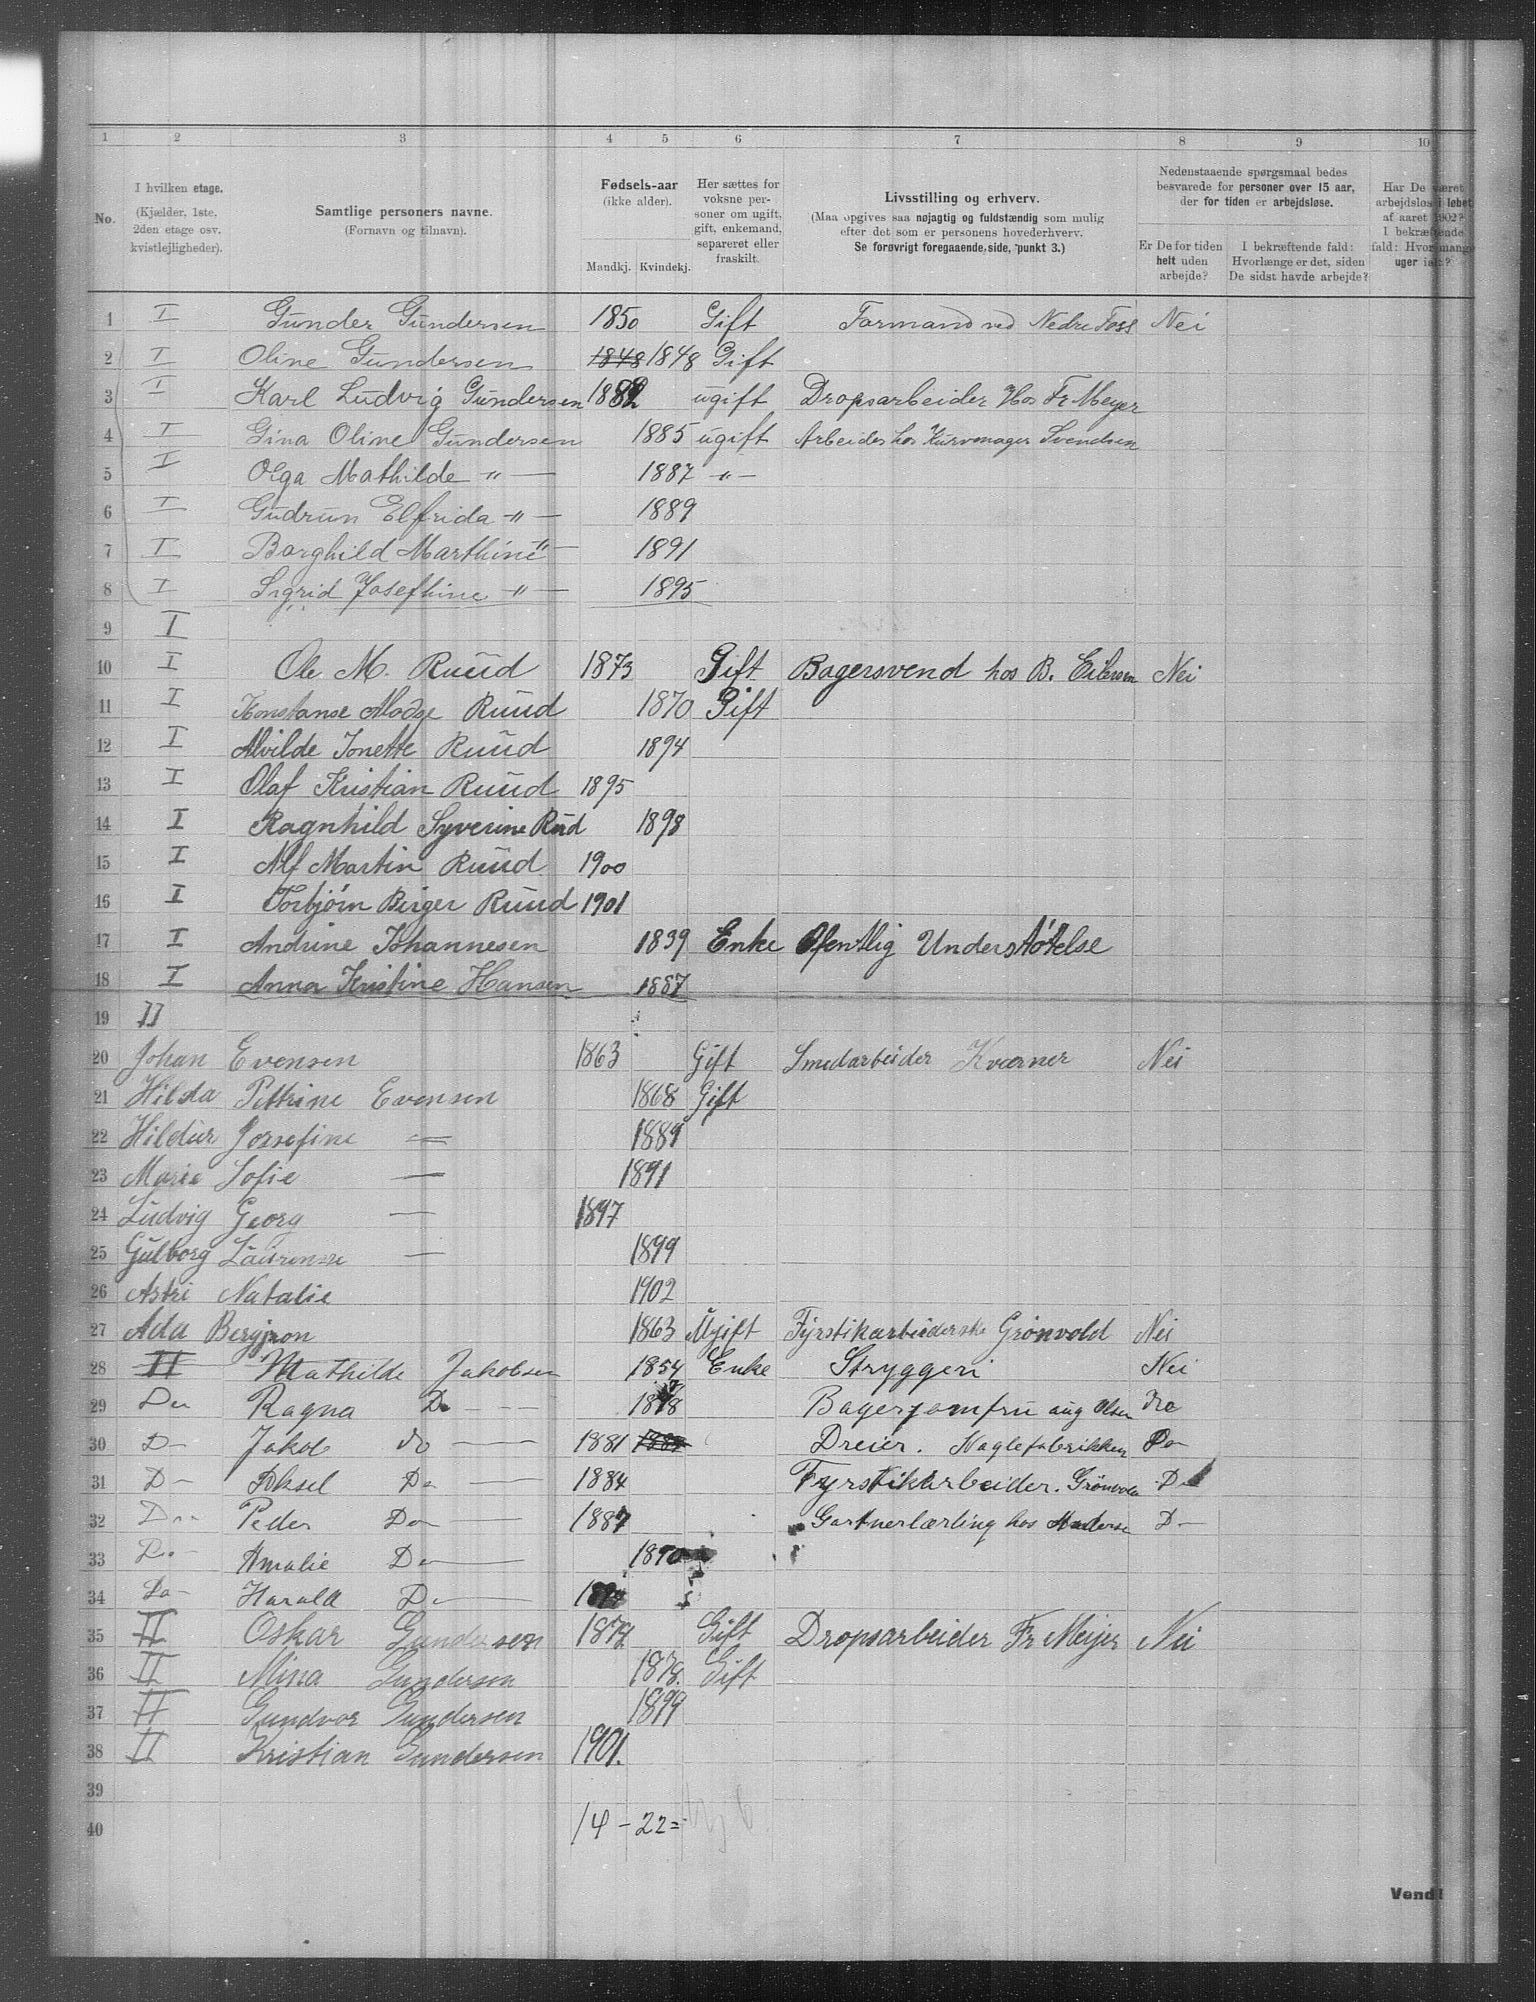 1 2 3 4 5 6 7 8 9 10
No.
I hvilken etage.
(Kjælder, 1ste.
2den etage osv.
kvistlejligheder).
Samtlige personers navne.
(Fornavn og tilnavn).
Fødsels-aar
(ikke alder).
Mandkj. Kvindekj.
Her sættes for
voksne per-
soner om ugift,
gift, enkemand,
separeret eller
fraskilt.
Livsstilling og erhverv.
(Maa opgives saa nøjagtig og fuldstændig som mulig
efter det som er personens hovederhverv.
Se forøvrigt foregaaende side, punkt 3.)
Nedenstaaende spørgsmaal bedes
besvarede for personer over 15 aar,
der for tiden er arbejdsløse.
Er De for tiden
helt uden
arbejde?
I bekræftende fald:
Hvorlænge er det, siden
De sidst havde arbejde?
Har De været
arbejdsløs i løbet
af aaret 1902?
I bekræftende
fald: Hvor mange
uger ialt?
1 I Gunder Gundersen 1850 Gift Formand ved Nedre Foss Nei
2 I Oline Gundersen 1848 1848 Gift
3 I Karl Ludvig Gundersen 1882 ugift Dropsarbeider Hos Fr Meyer
4 I Gina Oline Gundersen 1885 ugift Arbeider hos Kurvmager Svendsen
5 I Olga Mathilde " — 1887 " —
6 I Gudrun Elfrida " — 1889
7 I Borghild Marthine " — 1891
8 I Sigrid Josefhine " — 1895
9 I
10 I Ole M. Ruud 1873 Gift Bagersvend hos B. Eilersen Nei
11 I Konstanse Madge Ruud 1870 Gift
12 I Alvilde Jonette Ruud 1894
13 I Olaf Kristian Ruud 1895
14 I Ragnhild Syverine Rud 1898
15 I Alf Martin Ruud 1900
16 I Torbjørn Birger Ruud 1901
17 I Andrine Johannesen 1839 Enke Ofentlig Understøtelse
18 I Anna Kristine Hansen 1887
19 II
20 Johan Evensen 1863 Gift Smedarbeider Kværner Nei
21 Hilda Pettrine Evensen 1868 Gift
22 Hildur Jossefine — 1889
23 Marie Sofie — 1891
24 Ludvig Georg — 1897
25 Gulborg Laurense — 1899
26 Astri Natalie 1902
27 Ada Bergjron 1863 Ugift Fyrstikarbeiderske Grønvold Nei
28 II Mathilde Jakobsen 1854 Enke Stryggeri Nei
29 Do Ragna Do — 1878 Bagerjomfru aug Olsen Do
30 D— Jakob do — 1881 Dreier. Naglefabrikken Do
31 D— Aksel Do — 1884 Fyrstikarbeider. Grønvold D—
32 Do— Peder Do — 1887 Gartnerlærling hos D—
33 Do— Amalie Do — 1890
34 Do— Harald Do —
35 II Oskar Gundersen 1877 Gift Dropsarbeider Fr Meijer Nei
36 II Mina Gundersen 1878. Gift
37 II Gundvor Gundersen 1899
38 II Kristian Gundersen 1901.
39
40 14 - 22 =
Vend!